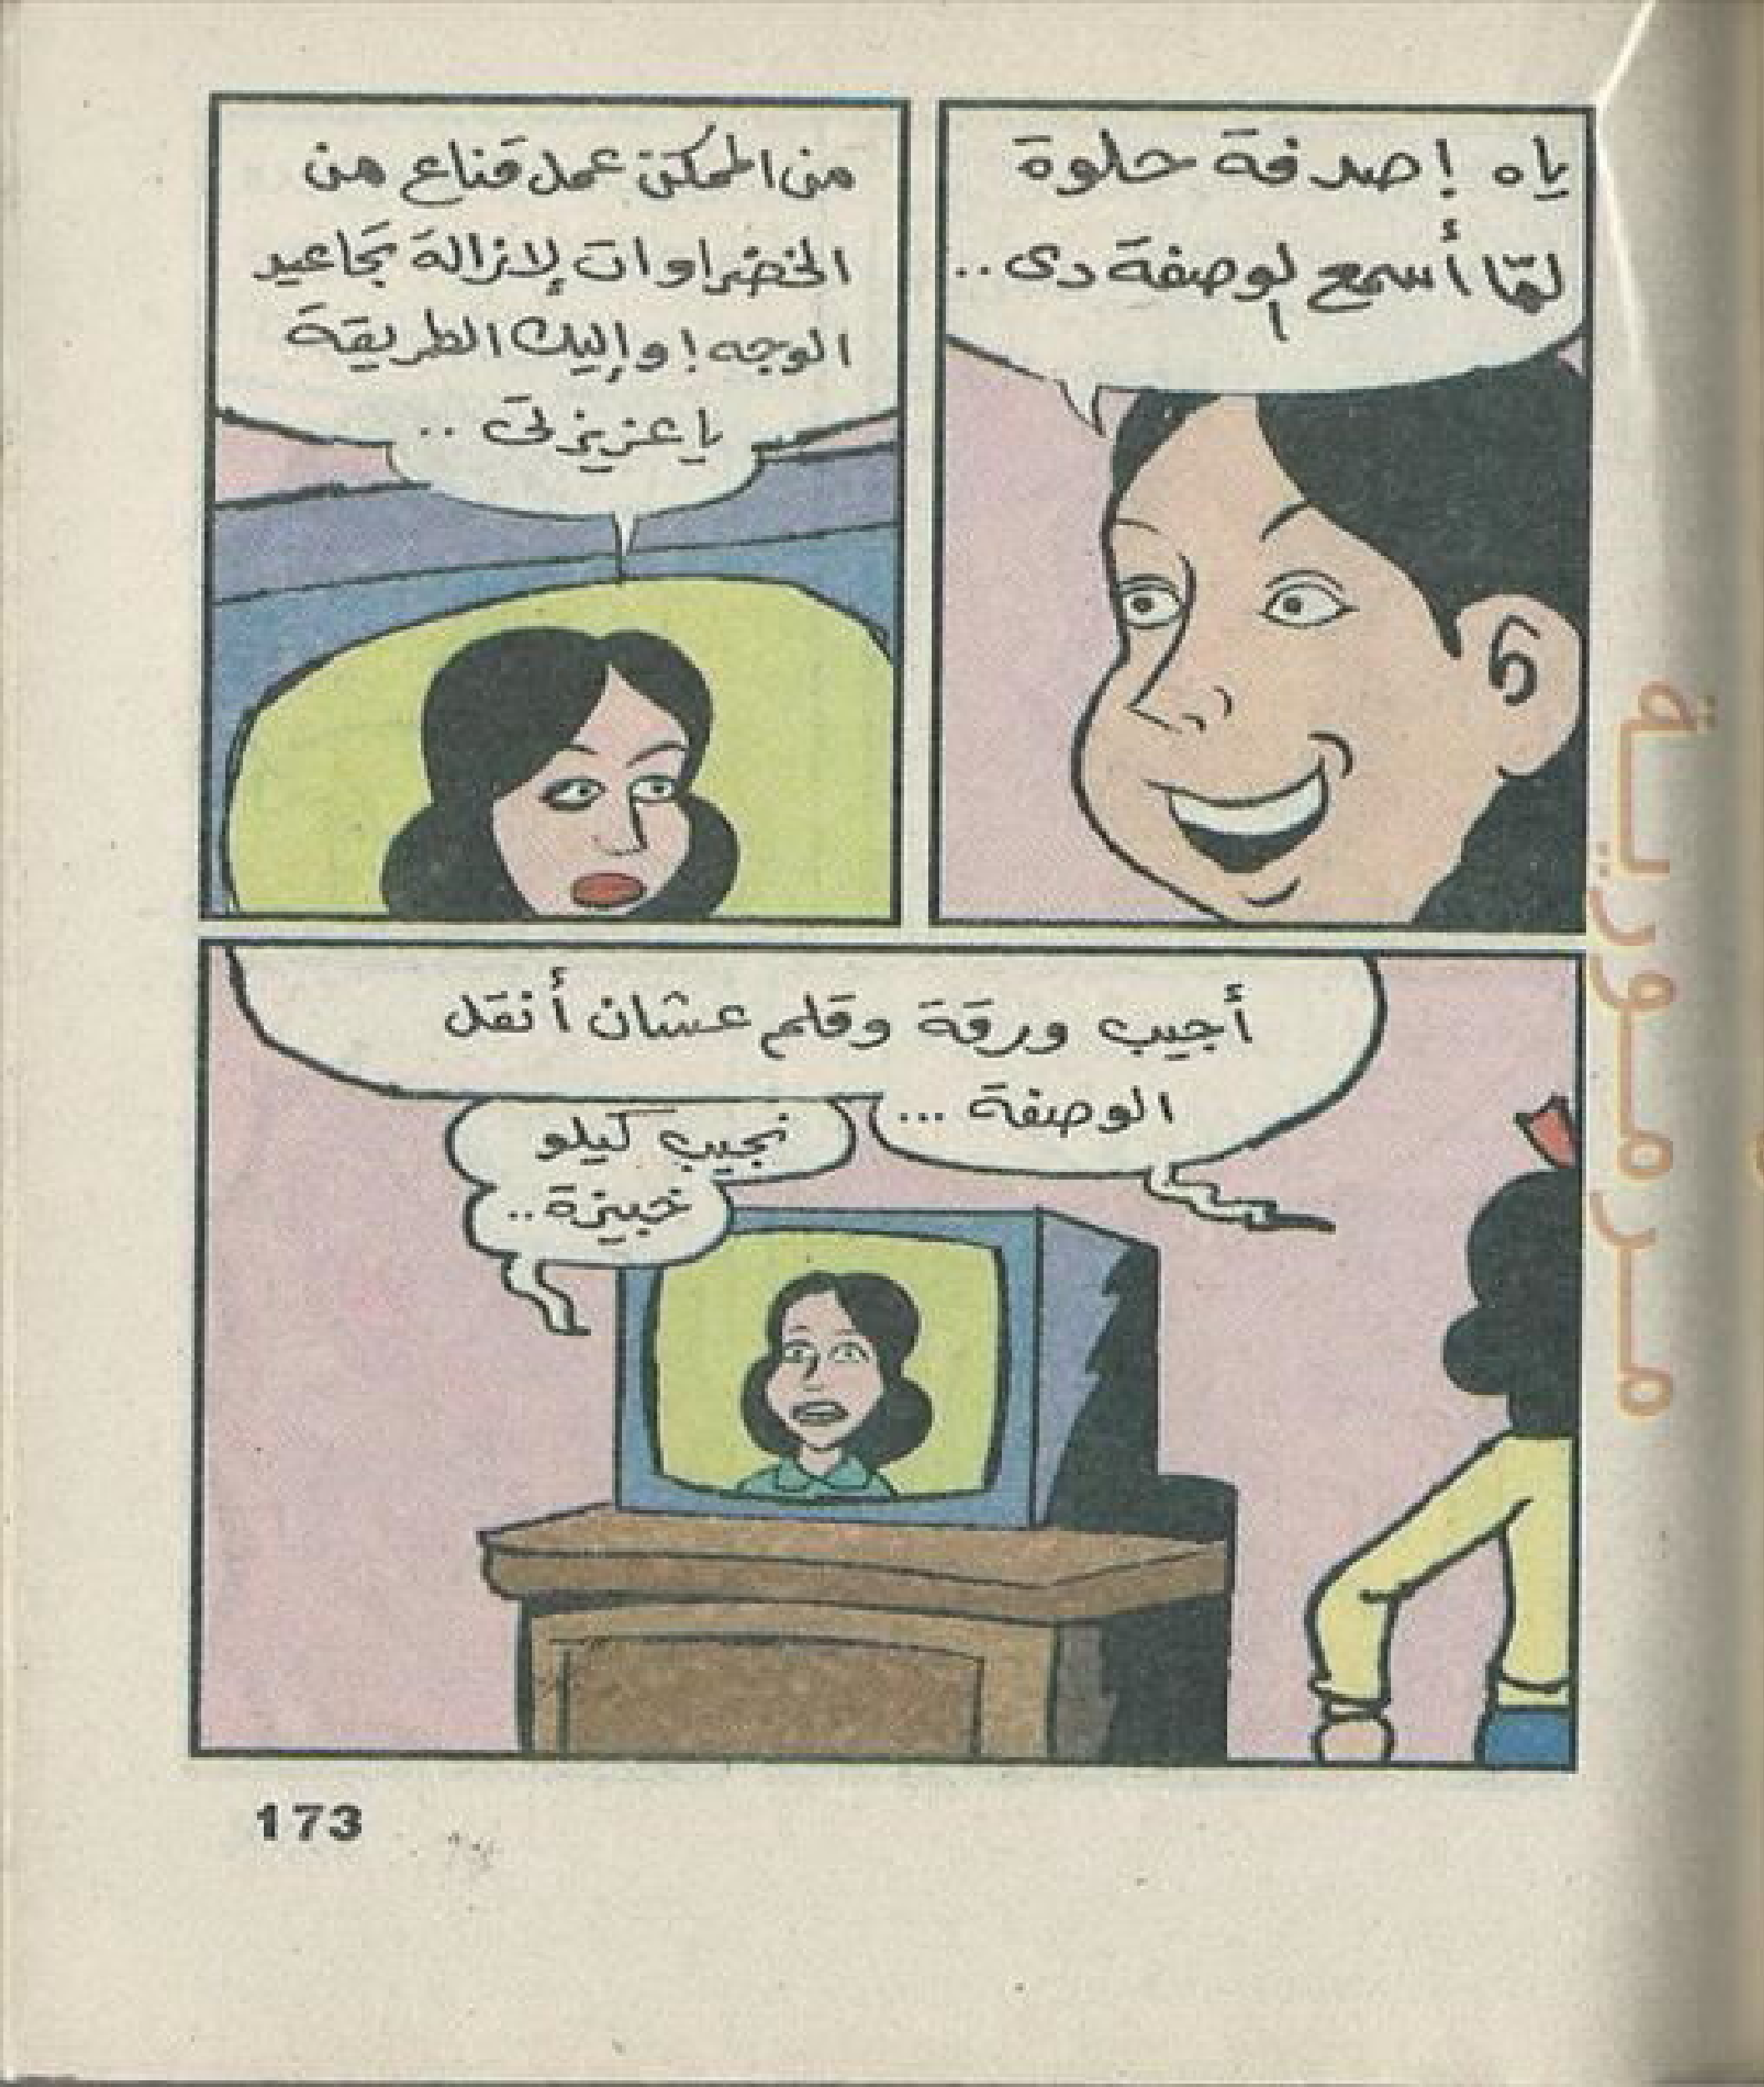 ياه ! صدفة حلوة
لمّا أسمع الوصفة دى ..
من الممكن عمل قناع من
الخضراوات لإزالة تجاعيد
الوجه ! وإليك الطريقة
يا عزيزتى ..
أجيب ورقة وقلم عشان أنقل
الوصفة ...
نجيب كيلو
خبيزة ..
مرمورية
173